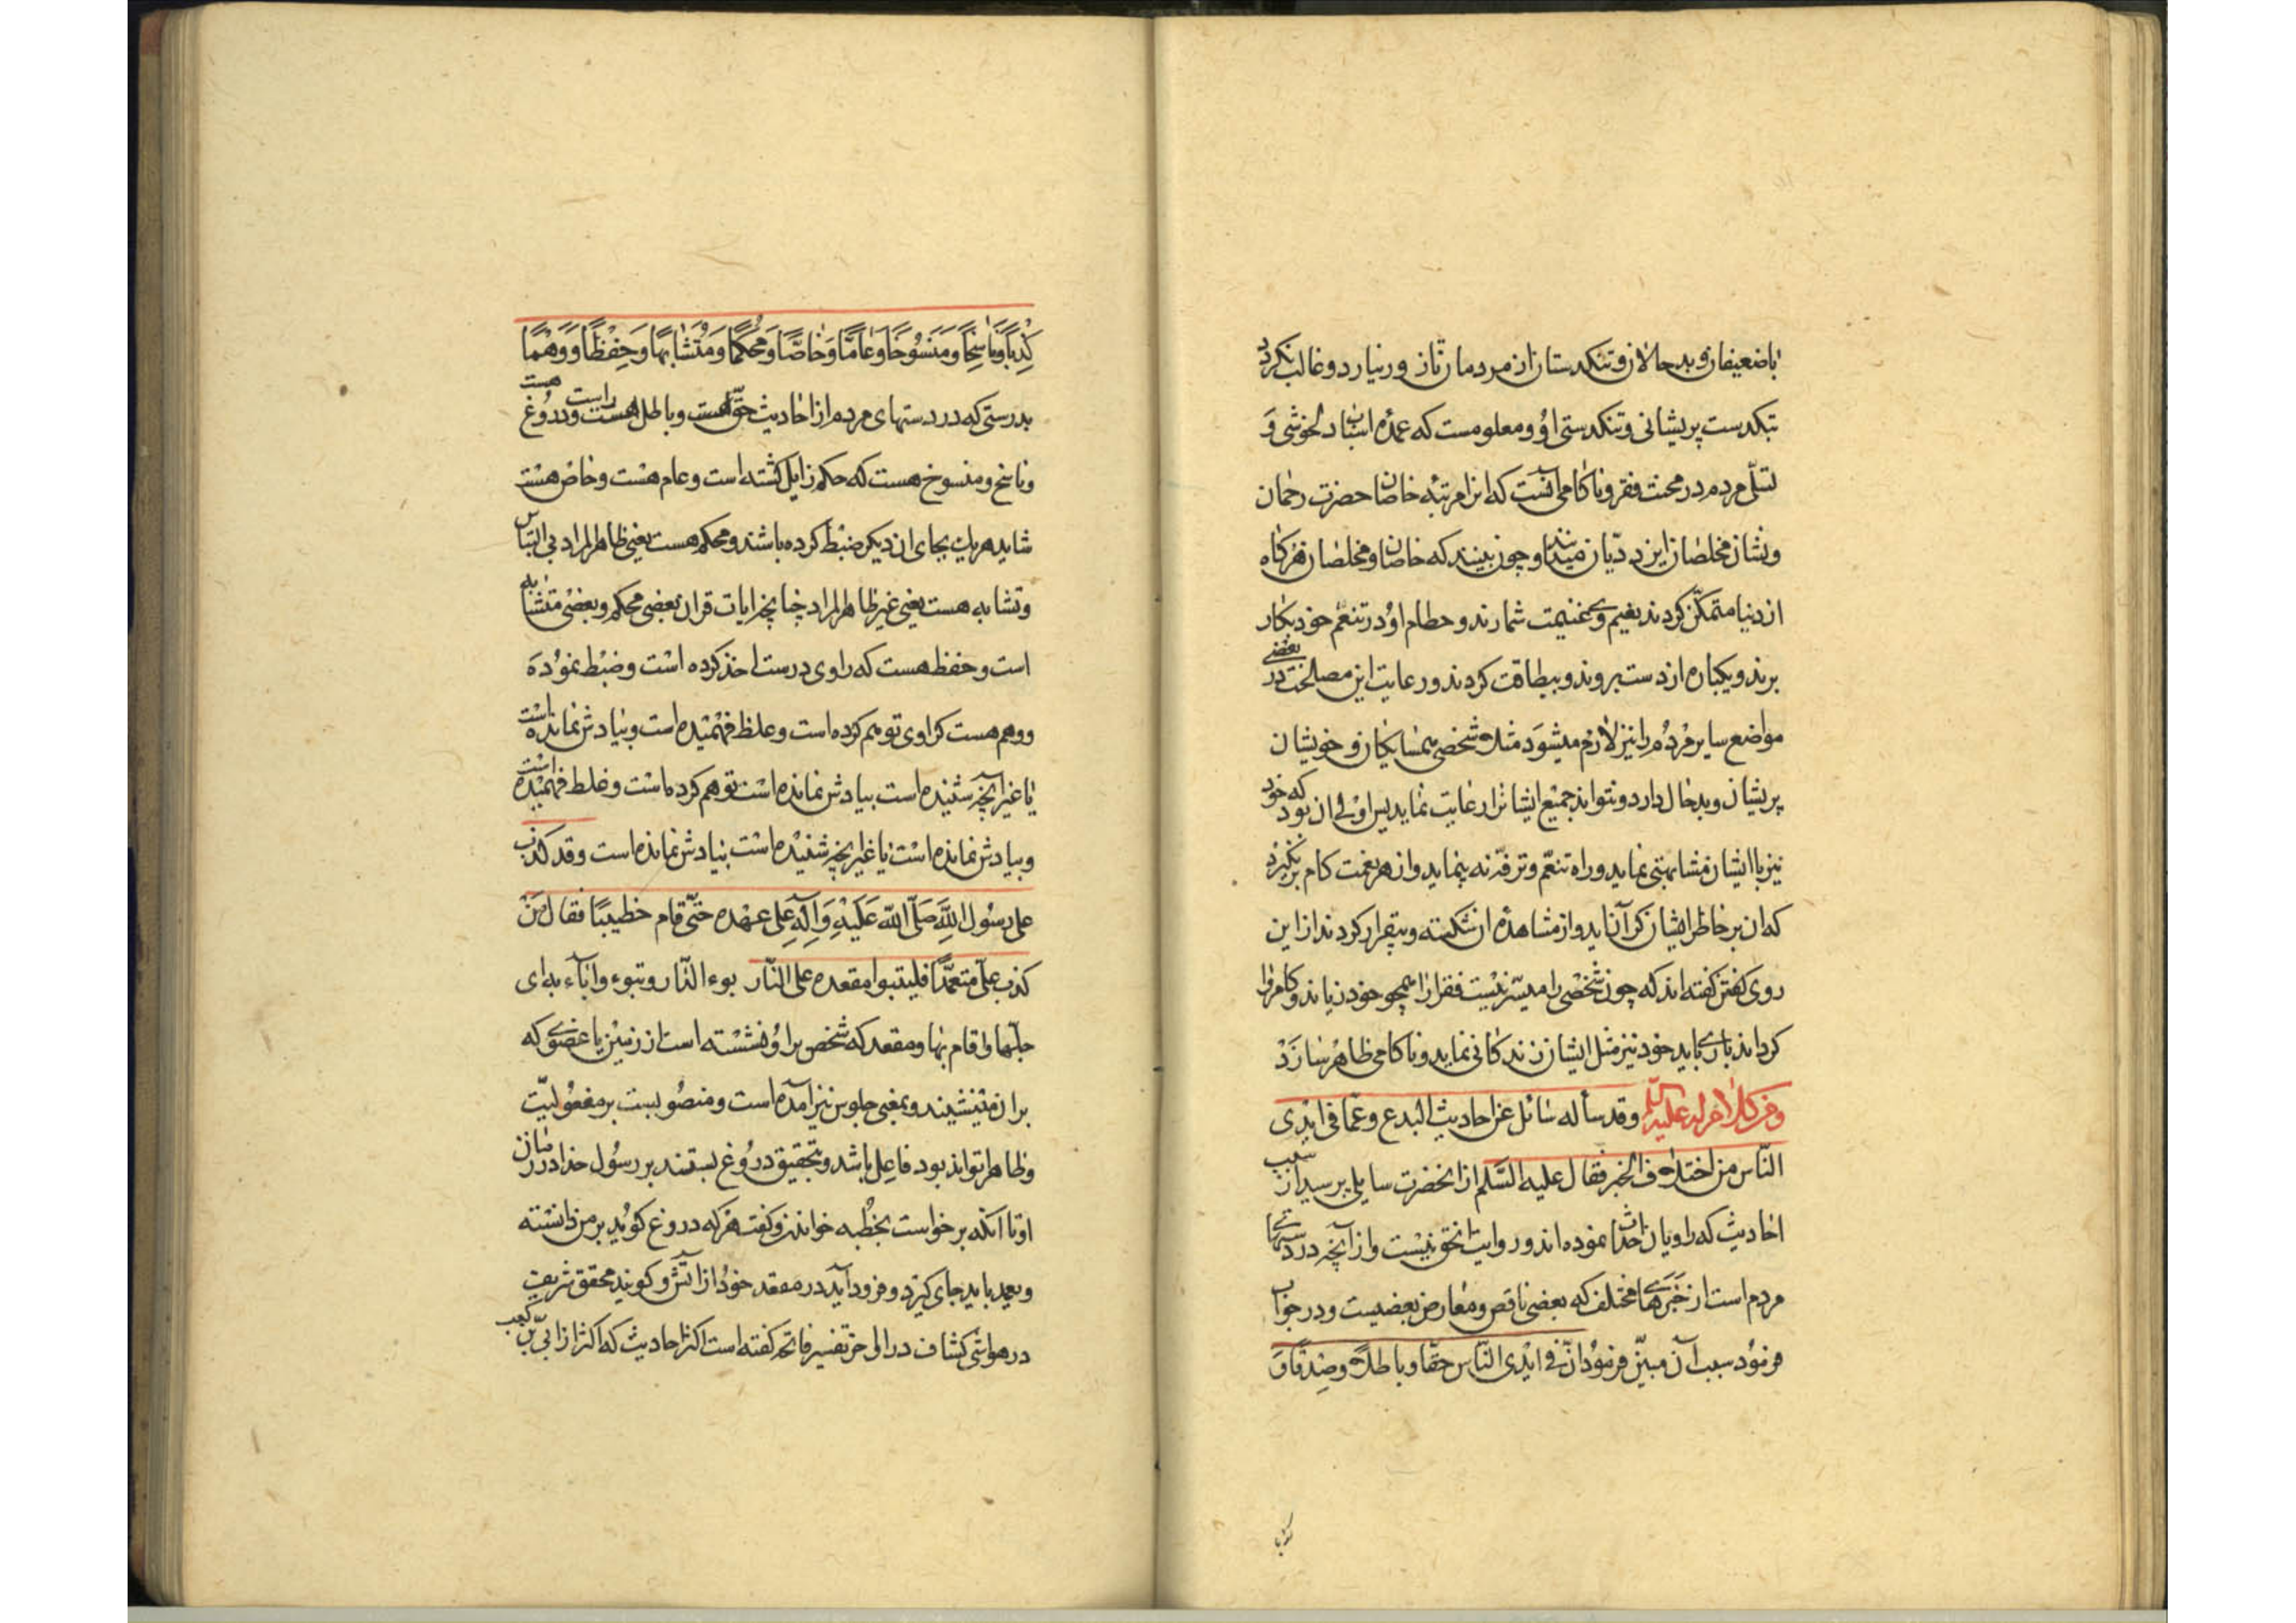 باضعیفان و بدحالان و تنگدستان از مردمان تا زور نیارد و غالب نگردد
بتنگدست پریشانی و تنگدستی او و معلومست که عمدهٔ اسباب دلخوشی و
تسلّی مردم در محنت فقر و ناکامی آنست که این مرتبه خاصان حضرت رحمان
و نشان مخلصان ایزد دیّان میدانند و چون بینند که خاصان و مخلصان هرگاه
از دنیا متمکّن گردند بغیم وی غنیمت شمارند و حطام او در تنعّم خود بکار
برند و یکباره از دست بروند و بیطاقت گردند و رعایت این مصالحت در بعضی
مواضع سایر مردم را نیز لازم میشود مثلا شخصی همسایگان و خویشان
پریشان و بدحال دارد و نتواند جمیع ایشانرا رعایت نماید پس اولی ان بود که خود
نیز باایشان مشابهتی نماید و راه تنعّم و ترفّه نه پیماید و از هر نعمت کام برنگیرد
که ان بر خاطر ایشان گران آید و از مشاهدهٔ ان شکسته و بیقرار گردند از این
روی گفتن گفته اند که چون شخصی را میسّر نیست فقرا را همچو خود زیاند و کامروا
گرداند باری باید خود نیز مثل ایشان زندگانی نماید و ناکامی ظاهر سازد
و من کلام له علیه السلم و قد سأله سائل عن احادیث البدع و عمّا فی ایدی
النّاس من اختلاف الخبر فقال علیه السّلم از انحضرت سایلی پرسید از سبب
احادیث که راویان احداث نموده اند و روایت انحق نیست و از آنچه در دستهای
مردم است از خبرهای مختلف که بعضی ناقص و معارض بعضیست و در جواب
فرمود سبب آن مبیّن فرمود انّ فی ایدی النّاس حقّا و باطلا و صدقا و
کذبا
کِذباً وَ ناسِخاً وَ مَنسُوخاً وَ عامّاً وَ خاصّاً وَ مُحکَماً وَ مُتَشابِهاً وَ حِفظاً وَ وَهماً
بدرستی که در دستهای مردم از احادیث حقّ هست و باطل هست و راست هست و دروغ
و ناسخ و منسوخ هست که حکم زایل گشته است و عام هست و خاص هست
شاید هر یک بجای ان دیگر ضبط کرده باشند و محکم هست یعنی ظاهر المراد بی التباس
و تشابه هست یعنی غیر ظاهر المراد چنانچه ایات قران بعضی محکم و بعضی متشابه
است و حفظ هست که راوی درست اخذ کرده است و ضبط نموده
و وهم هست که راوی توهم کرده است و غلط فهمیده است و بیادش نمانده است
یا غیر آنچه شنیده است بیادش نمانده است توهم کرده است و غلط فهمیده است
و بیادش نمانده است یا غیر آنچه شنیده است بیادش نمانده است و قد کذب
علی رسول اللَّهِ صَلَّی اللّه عَلَیهِ وَ آلِهِ علی عهده حتّی قام خطیبًا فقال مَن
کذب علیّ متعمّدًا فلیتبوا مقعده علی النّار بوء الدّار و تبوء و اباء به ای
حلّها و اقام بها و مقعد که شخص بر او نشسته است از زمین یا عضوی که
بران مینشیند و بمعنی جلوس نیز آمده است و منصوبست بر مفعولیّت
و ظاهرا تواند بود فاعل باشد و بتحقیق دروغ بستند بر رسول خدا در زمان
او تا آنکه برخواست بخطبه خواندن و گفت هر که دروغ گوید بر من دانسته
و بعمد باید جای گیرد و فرود آید در مقعد خود از آتش و گویند محقق شریف
در حواشی کشاف در اواخر تفسیر فاتحه گفته است اکثر احادیث که اکثر از ابیّ بن کعب